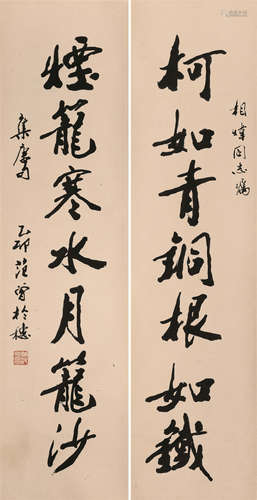 相煒同志屬
柯如青銅根如鐵
煙籠寒水月籠沙
集唐句
乙卯范曾於穗